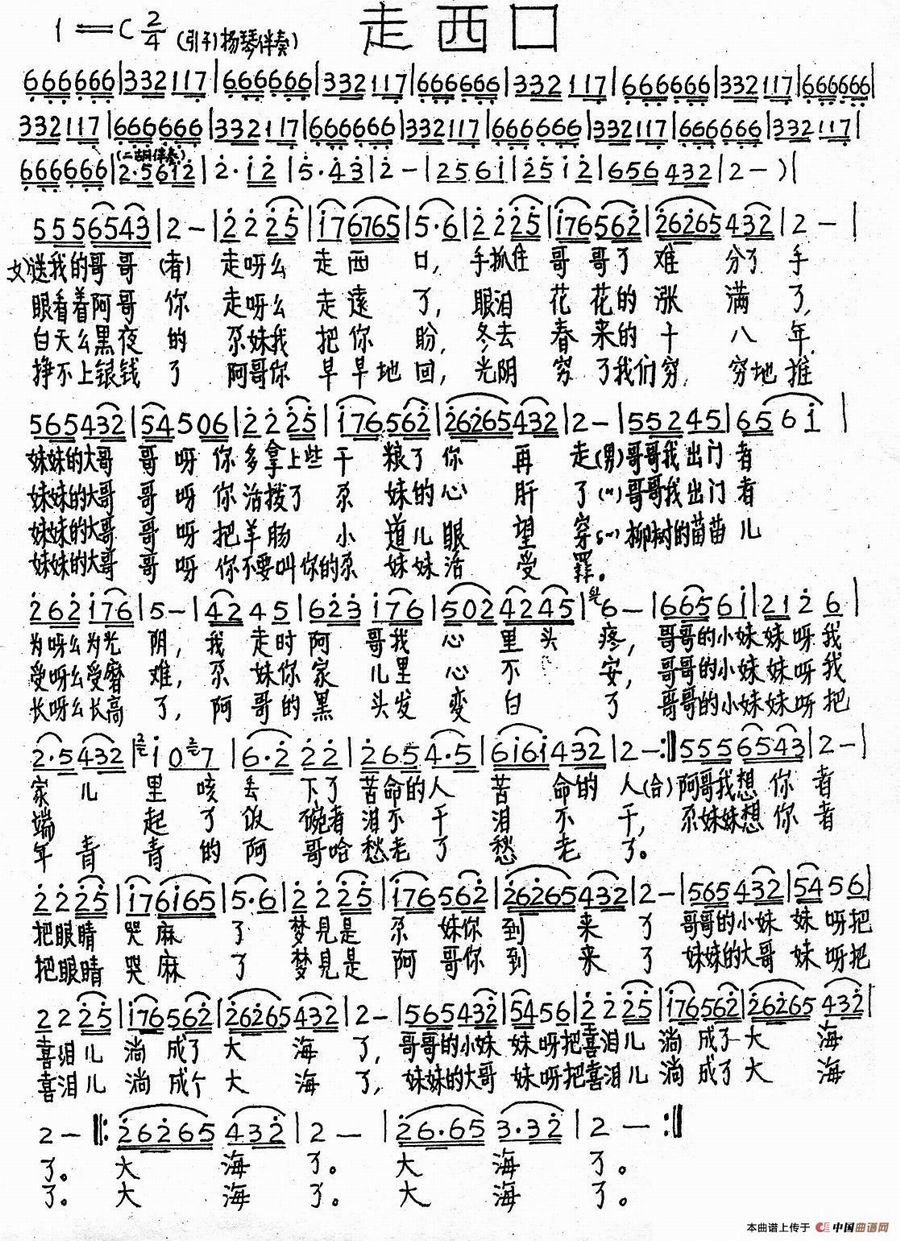 走西口
1=C 2/4 (引子)扬琴伴奏)
666666|332117|666666|332117|666666|332117|666666|332117|666666|
332117|666666|332117|666666|332117|666666|332117|666666|332117|
(二胡伴奏)
666666|2·5612|2·12|5·43|2-|2561|2512|656432|2-)|
5556543|2-|2225|176765|5·6|2225|176562|26265432|2-|
女)送我的哥哥(者)走呀么走西口,手抓住哥哥了难分了手
眼看着阿哥你走呀么走远了,眼泪花花的涨满了,
白天么黑夜的尕妹我把你盼,冬去春来的十八年,
挣不上银钱了阿哥你早早地回,光阴穷了我们穷,穷地推
565432|54506|2225|176562|26265432|2-|55245|6561|
妹妹的大哥哥呀你多拿上些干粮了你再走(男)哥哥我出门者
妹妹的大哥哥呀你活拨了尕妹的心肝了(〃)哥哥我出门者
妹妹的大哥哥呀把羊肠小道儿眼望穿(〃)柳树的苗苗儿
妹妹的大哥哥呀你不要叫你的尕妹妹活受罪。
262176|5-|4245|623176|5024245|6-|66561|2126|
为呀么为光阴,我走时阿哥我心里头疼,哥哥的小妹妹呀我
受呀么受磨难,尕妹你家儿里心不安,哥哥的小妹妹呀我
长呀么长高了,阿哥的黑头发变白了哥哥的小妹妹呀把
2·5432|107|6·222|2654·5|6161432|2-:||5556543|2-|
家儿里咳丢下了苦命的人苦命的人(合)阿哥我想你者
端起了饭碗者泪不干泪不干,尕妹妹想你者
年青青的阿哥哈愁老了愁老了。
2225|176165|5·6|2225|176562|26265432|2-|565432|5456|
把眼睛哭麻了梦见是尕妹你到来了哥哥的小妹妹呀把
把眼睛哭麻了梦见是阿哥你到来了妹妹的大哥妹呀把
2225|176562|26265432|2-|565432|5456|2225|176562|26265432|
喜泪儿淌成了大海了,哥哥的小妹妹呀把喜泪儿淌成了大海
喜泪儿淌成个大海了,妹妹的大哥妹呀把喜泪儿淌成了大海
2-||:26265432|2-|26·653·32|2-:||
了。大海了。大海了。
了。大海了。大海了。
本曲谱上传于 中国曲谱网